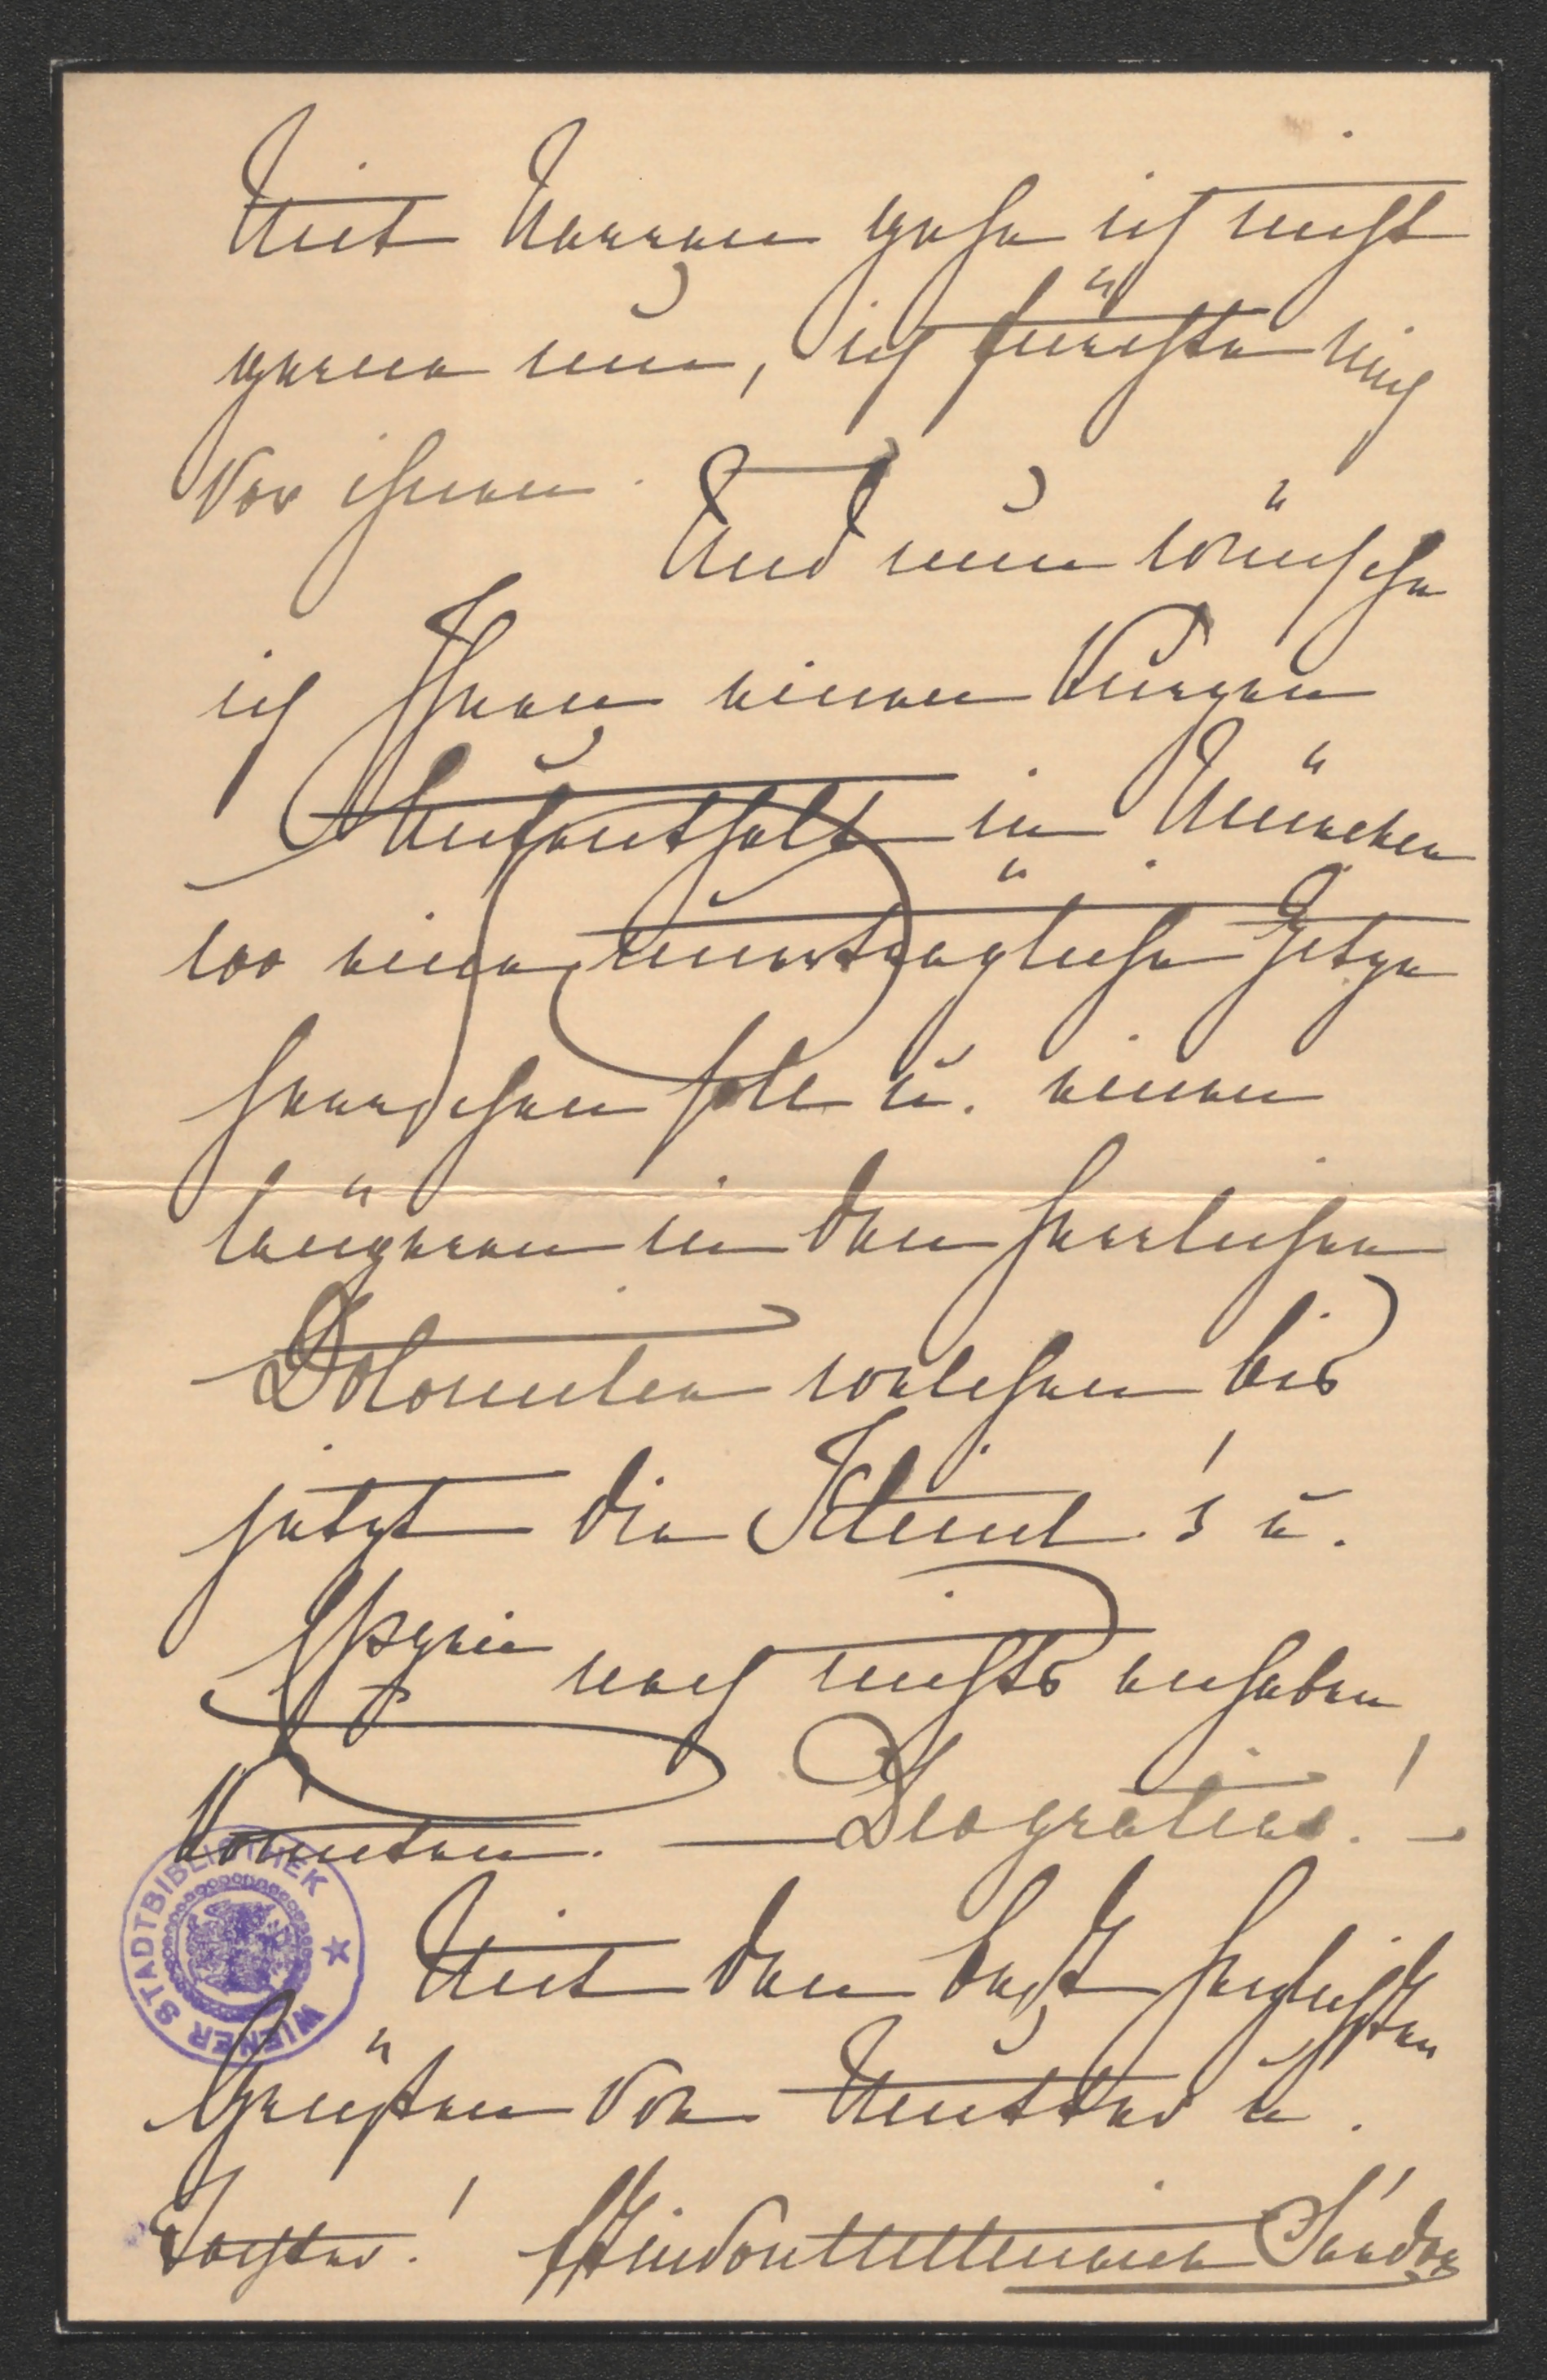 Mit Narren gehe ich nicht
gerne um, ich fürchte mich
vor ihnen.
Und nun wünsche
ich Ihnen einen kurzen
Aufenthalt in München
wo eine unerträgliche Hitze
herrschen soll u. einen
längeren in den herrlichen
Dolomiten welchen bis
jetzt die
noch nichts anhaben
konnten. — Deogratias! —
Mit den best herzlichsten
Grüßen von Mutter u.
Tochter! Metternich Sándor
WIENER STADTBIBLIOTHEK